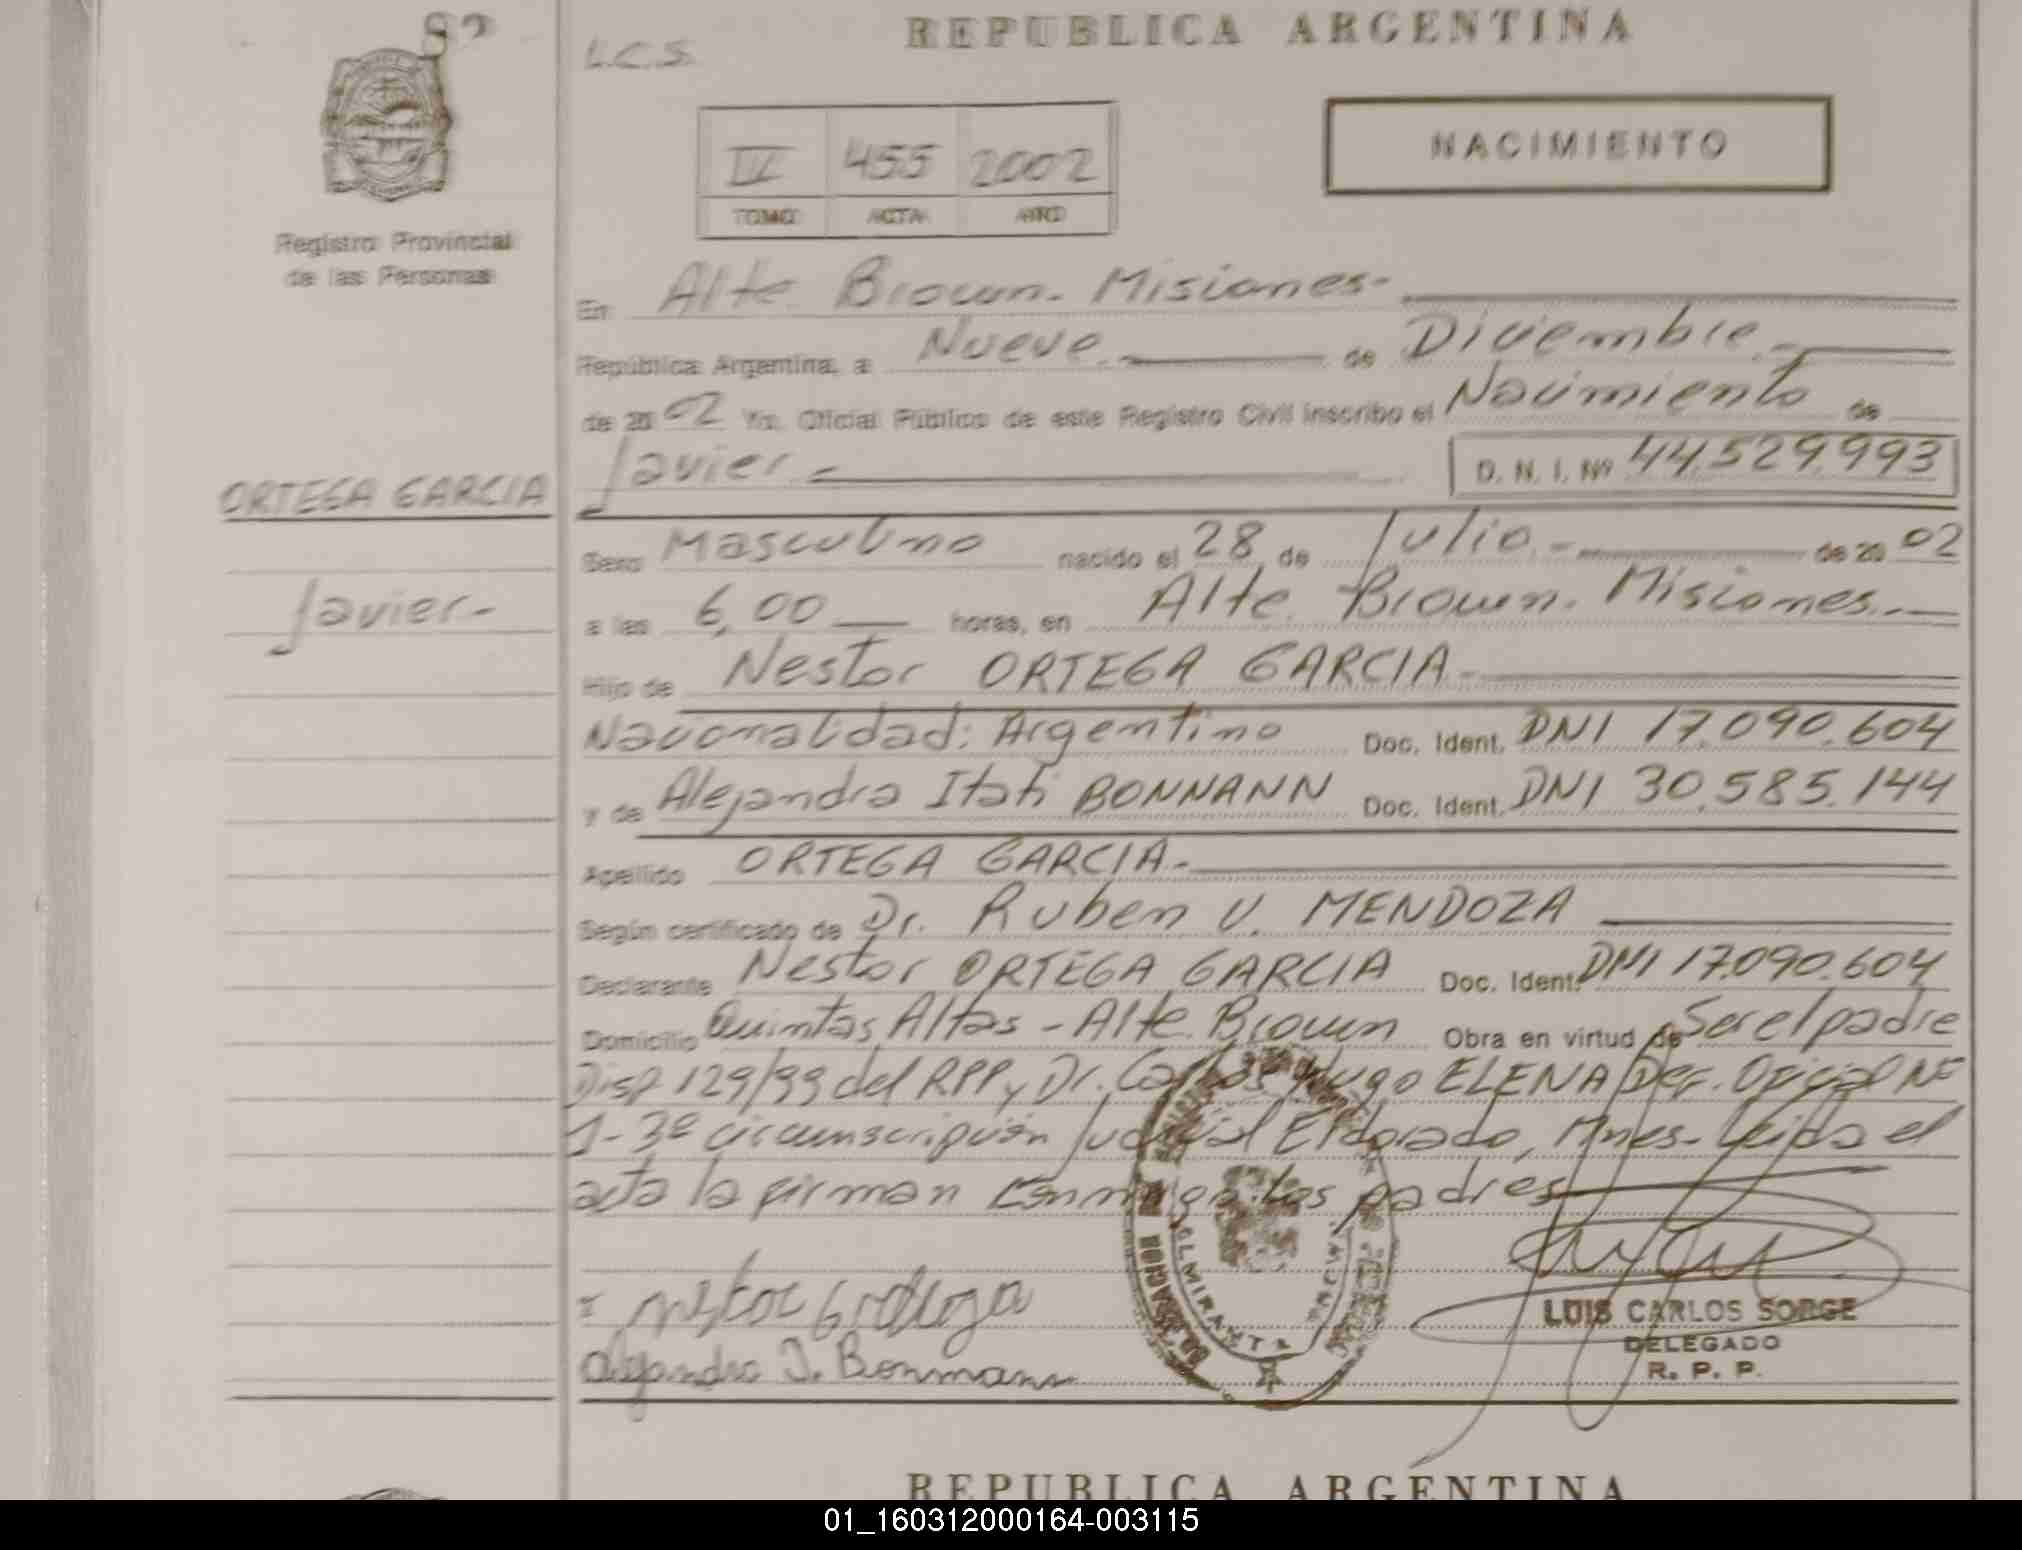 82
L.C.S.
REPUBLICA ARGENTINA
IV 455 2002
TOMO ACTA AÑO
NACIMIENTO
Registro Provincial
de las Personas
En Alte. Brown. Misiones.-
República Argentina, a Nueve. de Diciembre.-
de 2002 Yo, Oficial Público de este Registro Civil inscribo el Nacimiento de
Javier - D. N. I. Nº 44.529.993
ORTEGA GARCIA
Sexo Masculino nacido el 28 de Julio.- de 2002
Javier-
a las 6,00 horas, en Alte. Brown. Misiones.-
Hijo de Nestor ORTEGA GARCIA-
Nacionalidad: Argentino Doc. Ident. DNI 17.090.604
y de Alejandra Itati BONNANN Doc. Ident. DNI 30.585.144
Apellido ORTEGA GARCIA.-
Según certificado de Dr. Ruben V. MENDOZA
Declarante Nestor ORTEGA GARCIA Doc. Ident. DNI 17.090.604
Domicilio Quintas Altas - Alte. Brown Obra en virtud de Ser el padre
Disp 129/99 del RPP y Dr. Carlos Hugo ELENA Def. Oficial Nº
1- 3º circunscripción Judicial Eldorado, Mnes- Leida el
acta la firman conmigo los padres
Nestor Ortega
Alejandra I. Bonmann
ALMIRANTE BROWN
LUIS CARLOS SORGE
DELEGADO
R. P. P.
REPUBLICA ARGENTINA
01_160312000164-003115